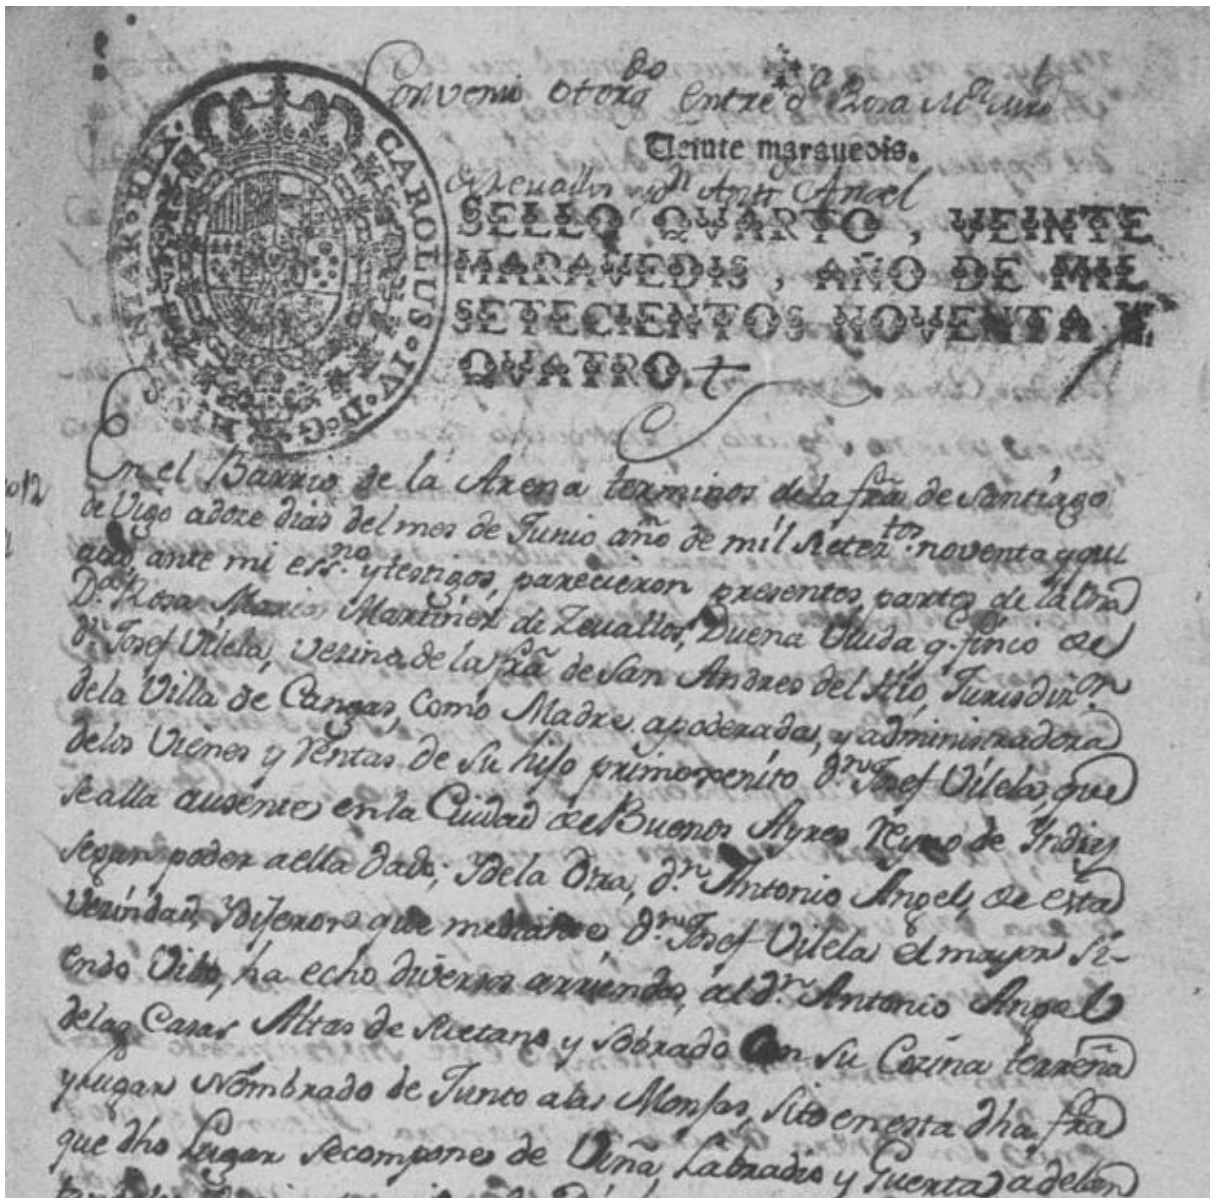 Convenio otorgdo entre da Rosa Ma
Veinte marauedis.
de Zeuallos y dn Antt Angel
SELLO QVARTO, VEINTE
MARAVEDIS, AÑO DE MIL
SETECIENTOS NOVENTA Y
QUATRO.
CAROLUS·IV·D·G·HISP
En el Barrio de la Arena terminos de la fra de Santiago
de Vigo a doze dias del mes de Junio año de mil Seteztos. noventa y qu
atro, ante mi essno. y testigos, parecieron presentes, partes de la Una
Da. Rosa Maria Martinez de Zeuallos, Duena Viuda q. finco de
dn Josef Vilela, Vezina de la fra de San Andres del Hio, Jurisdizon.
de la Villa de Cangas, como Madre apoderada, y administradora
de los Vienes y Rentas de su hijo primogenito dn Josef Vilela, que
se alla ausente en la Ciudad de Buenos Ayres Reyno de Yndias
segun poder a ella dado; Y de la Otra, dn. Antonio Angel, de esta
Vezindad, Y dijeron que mediante dn Josef Vilela el mayor si-
endo Vibo, ha echo diversos arriendos, al dn. Antonio Angel
de las Casas Altas de Sietano y Sobrado con su Cozina terreña
y lugar Nombrado de Junto a las Monjas, sito en esta dha fra
que dho Lugar se compone de Viña, Labradio y Guerta adelan